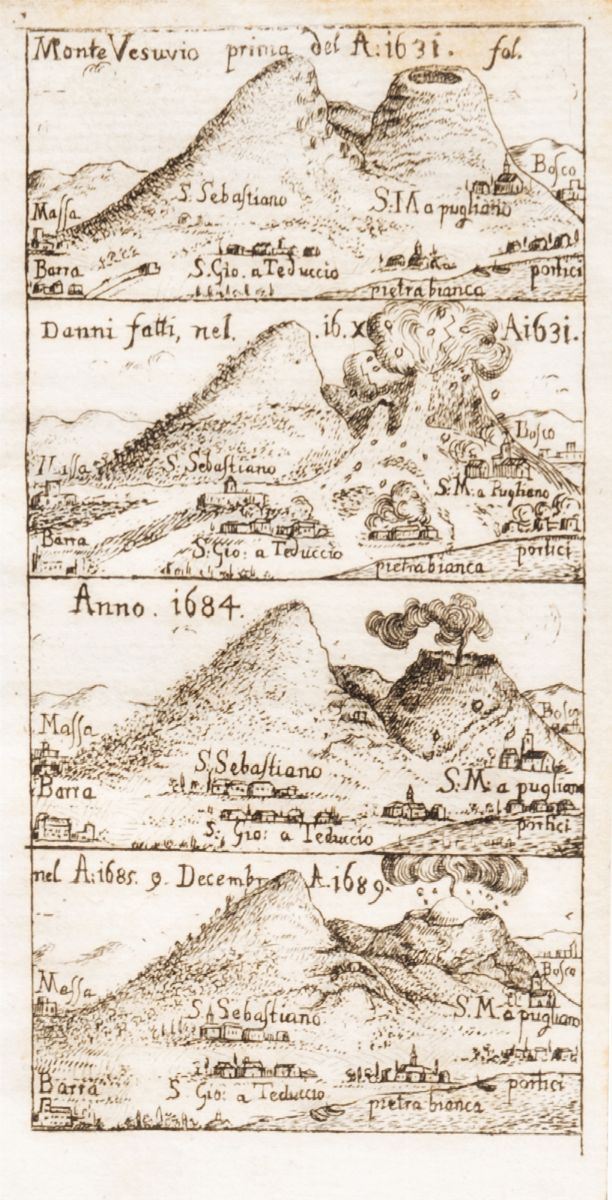 Monte Vesuvio prima del A: 1631. fol.
Bosco
S. Sebastiano
S: M a pugliano
Massa
Barra
S. Gio: a Teduccio
portici
pietra bianca
Danni fatti, nel. .16. X A1631.
Bosco
Massa
S. Sebastiano
S: M. a Pugliano
Barra
S: Gio: a Teduccio
portici
pietrabianca
Anno. 1684.
Massa
Bosco
S. Sebastiano
S: M: a pugliano
Barra
portici
S: Gio: a Teduccio
nel A: 1685. 9. Decembr A. 1689.
Bosco
Massa
S. Sebastiano
S. M. a pugliano
Barra
S: Gio: a Teduccio
portici
pietra bianca